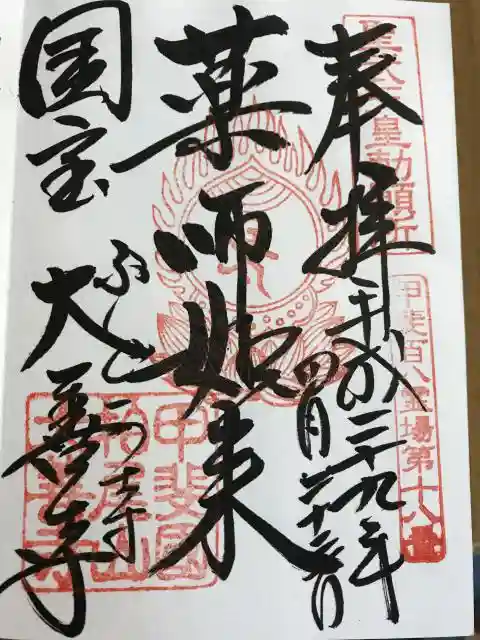 聖武天皇勅願所
甲斐百八霊場第十八番
奉拝
平成二十九年
四月二十六日
薬師如来
国宝
ぶどう寺
大善寺
甲斐國
柏尾山
大善寺